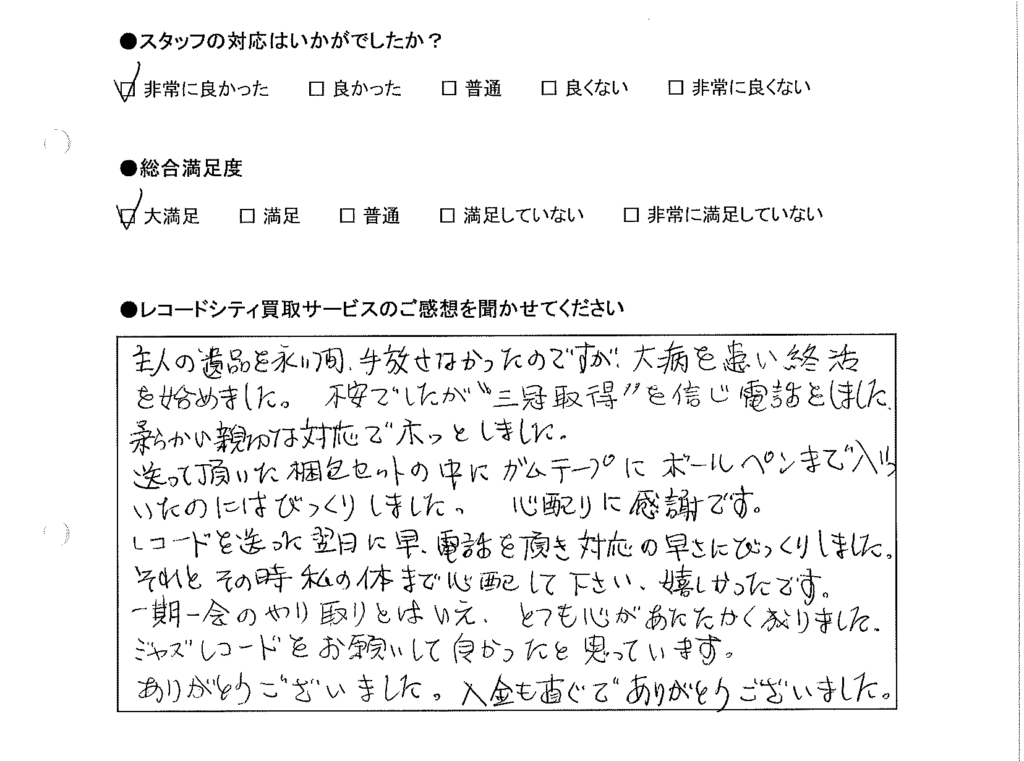 ●スタッフの対応はいかがでしたか？
☑ 非常に良かった □ 良かった □ 普通 □ 良くない □ 非常に良くない
●総合満足度
☑ 大満足 □ 満足 □ 普通 □ 満足していない □ 非常に満足していない
●レコードシティ買取サービスのご感想を聞かせてください
主人の遺品を永い間、手放せなかったのですが、大病を患い終活
を始めました。 不安でしたが“三冠取得”を信じ電話をしました。
柔らかい親切な対応でホッとしました。
送って頂いた梱包セットの中にガムテープにボールペンまで入って
いたのにはびっくりしました。 心配りに感謝です。
レコードを送った翌日に早、電話を頂き対応の早さにびっくりしました。
それとその時私の体まで心配して下さい、嬉しかったです。
一期一会のやり取りとはいえ、とても心があたたかく成りました。
ジャズレコードをお願いして良かったと思っています。
ありがとうございました。入金も直ぐでありがとうございました。